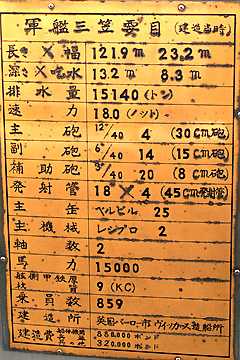 軍艦三笠要目 (建造当時)
長さ×幅 121.9m 23.2m
深さ×吃水 13.2m 8.3m
排水量 15140 (トン)
速力 18.0 (ノット)
主砲 12"/40 4 (30cm砲)
副砲 6"/40 14 (15cm砲)
補助砲 3"/40 20 (8cm砲)
発射管 18"×4 (45cm発射管)
主缶 ベルビル 25
主機械 レシプロ 2
軸数 2
馬力 15000
舷側甲鉄厚 9 (KC)
乗員数 859
建造所 英国バーロー市ヴィッカース造船所
建造費 船体機関 880,000ポンド
320,000ポンド